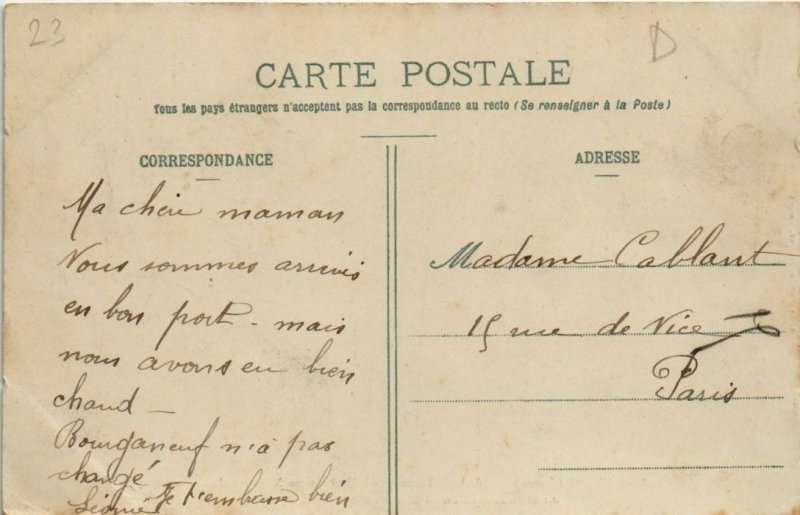 23
D
CARTE POSTALE
Tous les pays étrangers n'acceptent pas la correspondance au recto (Se renseigner à la Poste)
CORRESPONDANCE
Ma chère maman
Nous sommes arrivés
en bon port - mais
nous avons eu bien
chaud -
Bourganeuf n'a pas
changé
Je t'embrasse bien
ADRESSE
Madame Cablant
15 rue de Nice
Paris